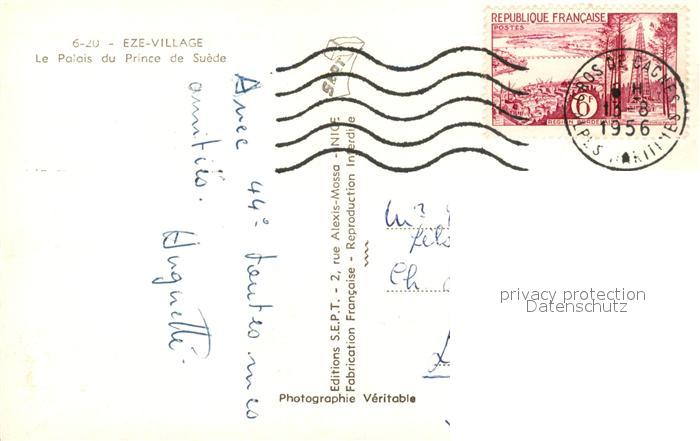 6-20 - EZE-VILLAGE
Le Palais du Prince de Suède
Avec 44° toutes mes
amitiés.
Huguette.
Editions S.E.P.T. - 2, rue Alexis-Mossa - NICE
Fabrication Française - Reproduction Interdite
SEPT
Photographie Véritable
REPUBLIQUE FRANÇAISE
POSTES
6F
CROS DE CAGNES
H
13-8
1956
ALPES MARITIMES
Ch
privacy protection
Datenschutz